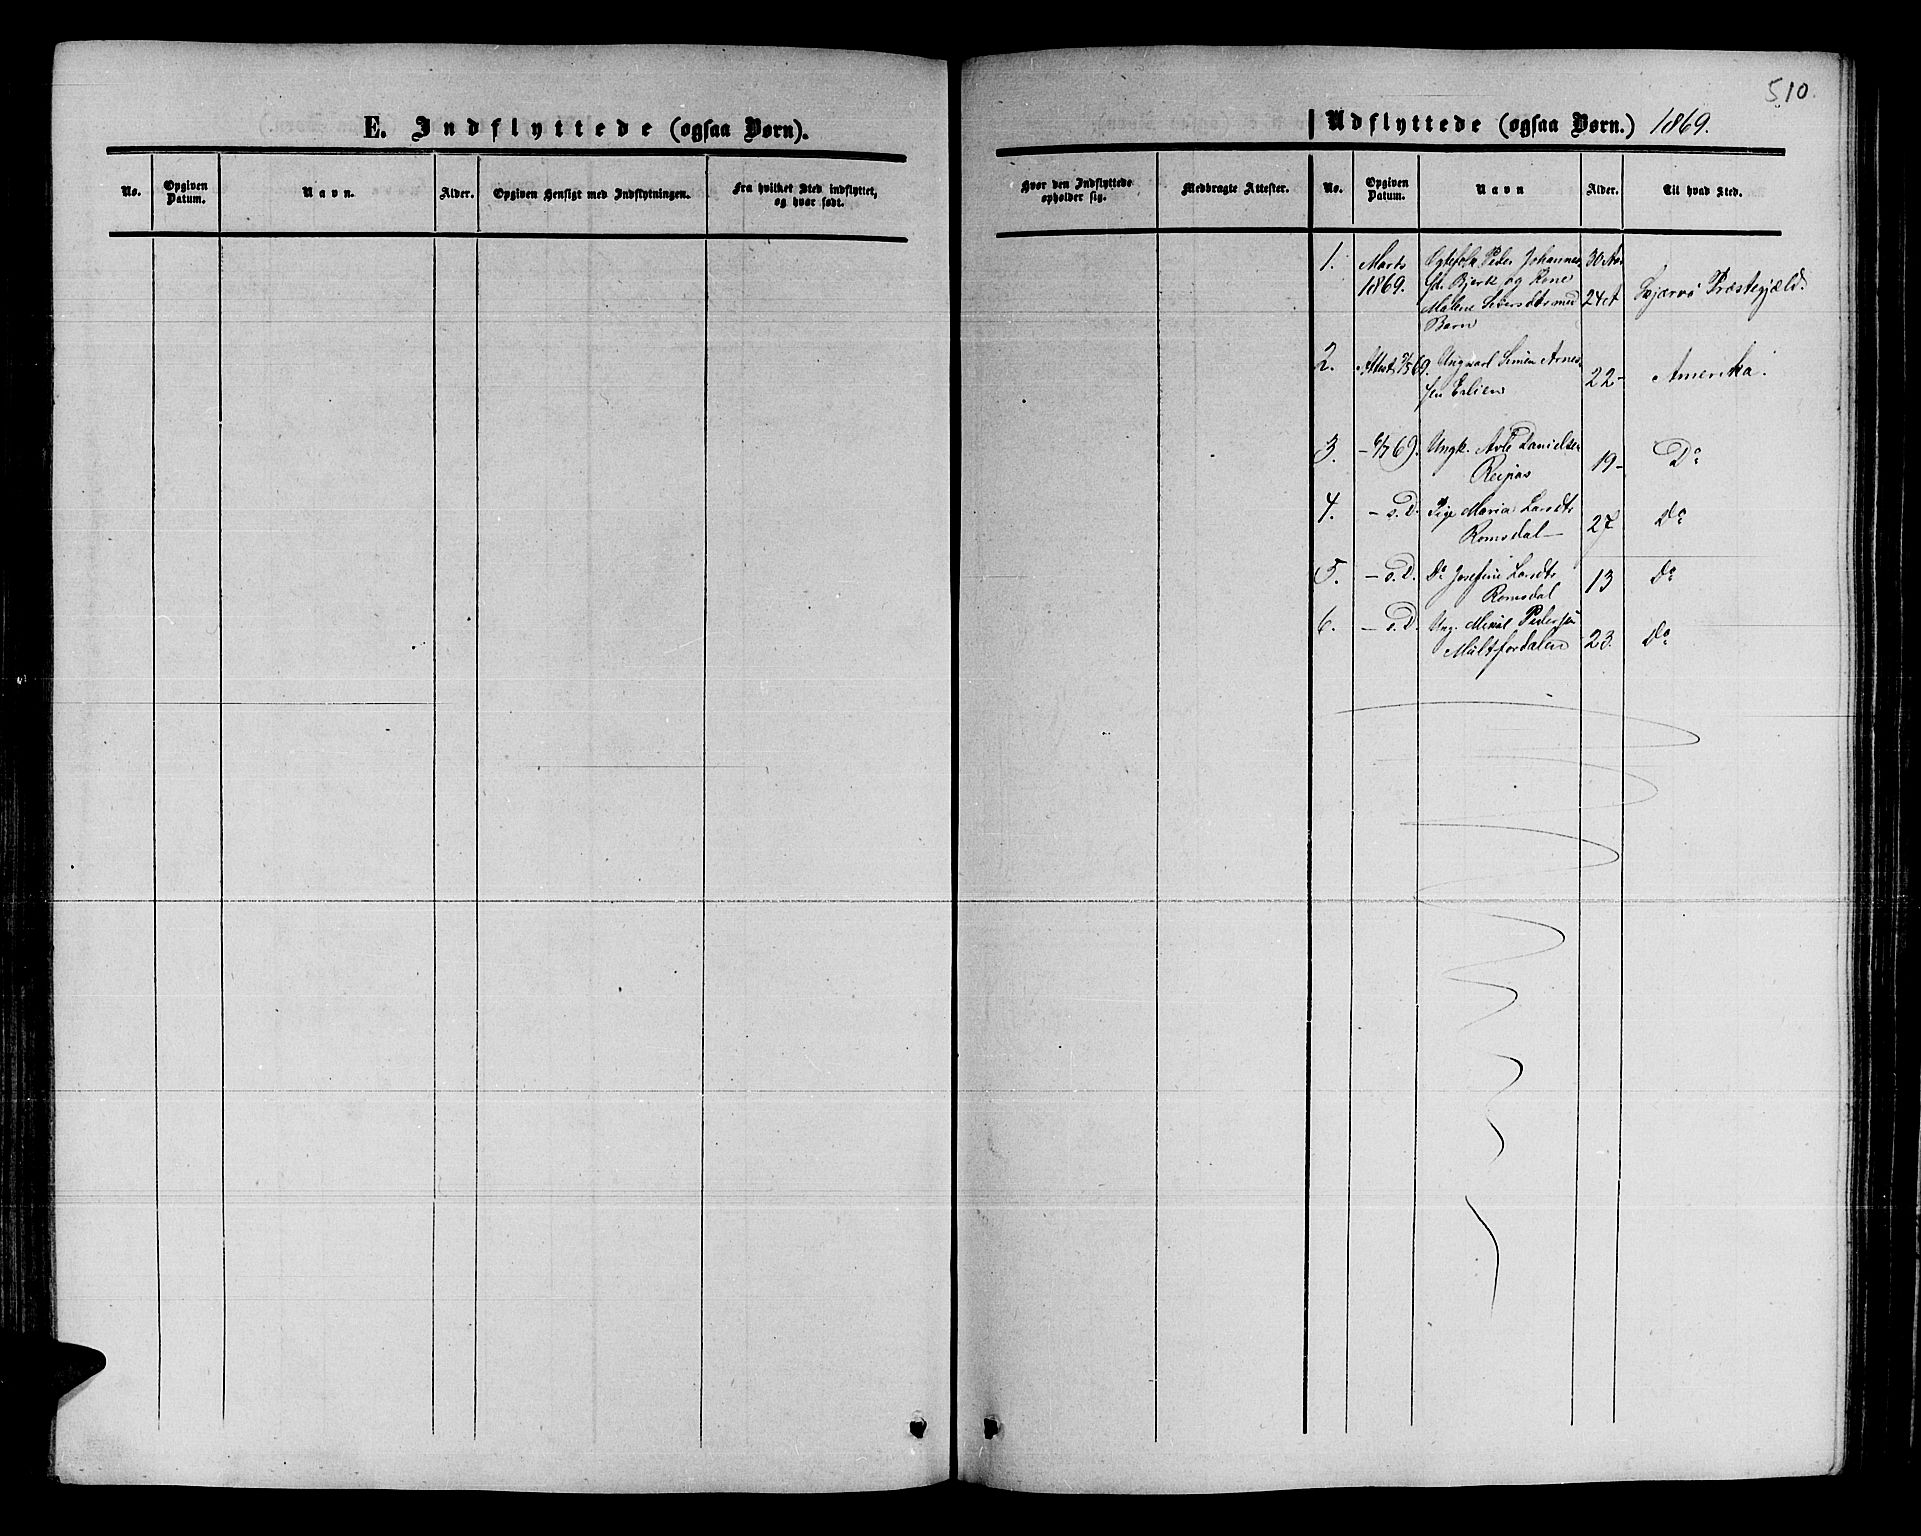 510.
E. Indflyttede (ogsaa Børn).
No. Opgiven Datum. Navn. Alder. Opgiven Hensigt med Indflytningen. Fra hvilket Sted indflyttet, og hvor født.
Udflyttede (ogsaa Børn.) 1869.
Hvor den Indflyttede opholder sig. Medbragte Attester. No. Opgiven Datum. Navn Alder. Til hvad Sted.
1. Marts Peder Johannes 30 Aar
1869. Bjerk og Rine 24 Skjervø Præstegjæld.
Malene Siversdtr med
Barn
2. Attest 69. Ungkarl Simen Arnes- 22- Amerika.
sen Erlien
3. - 69. Ungk. Danielsen 19- Do
Reipas
4. - s. D. Pige Maria Larsdtr 27 Do
Romsdal
5. - s. D. Do Josefine Larsdtr 13 Do
Romsdal
6. - s. D. Ung. Mikal Pedersen 23. Do